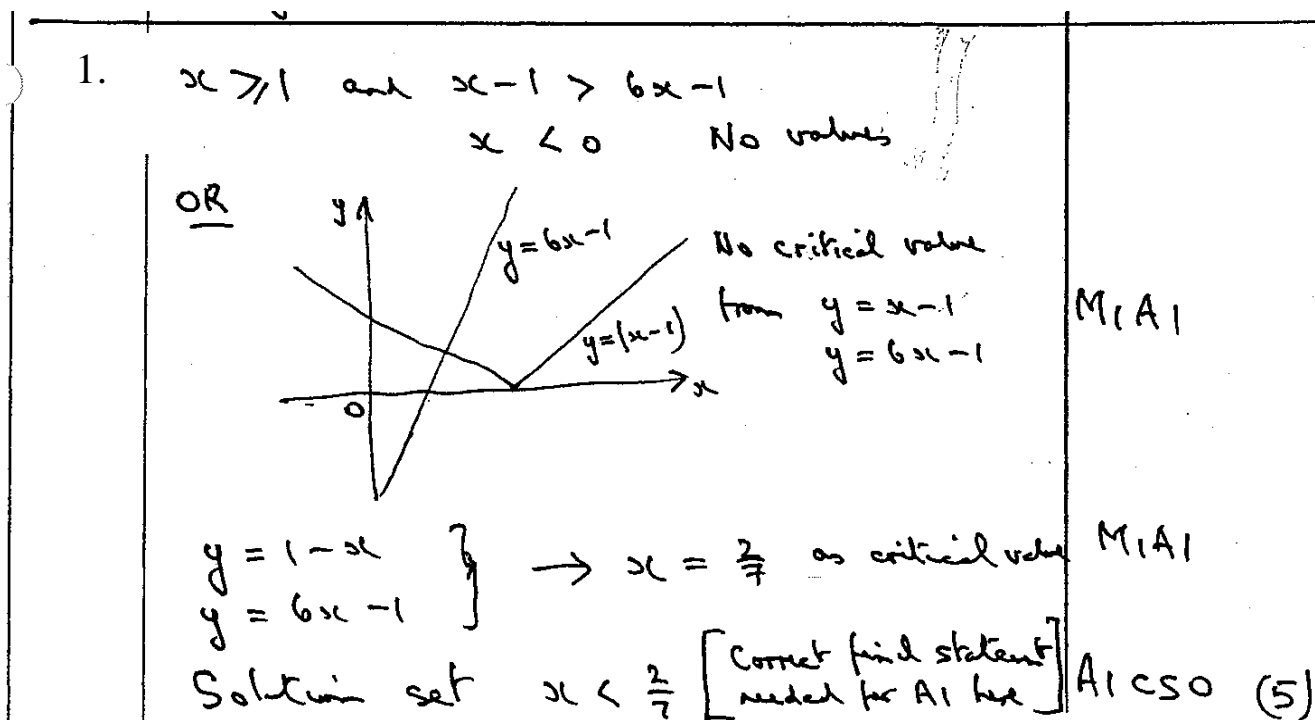 1. x ⩾ 1 and x-1 > 6x-1
x < 0 No values
OR
y
y = 6x-1
No critical value
from y = x-1
M1 A1
y = |x-1|
y = 6x-1
x
0
y = 1-x
y = 6x-1
} → x = 2/7 as critical value M1 A1
Solution set x < 2/7 [Correct final statement
needed for A1 here] A1 cso (5)